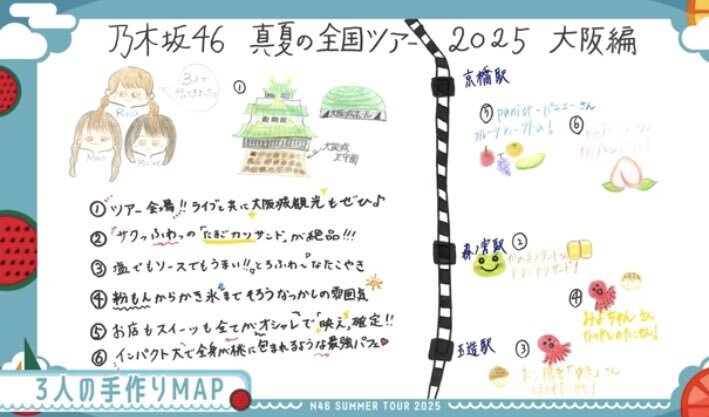 乃木坂46 真夏の全国ツアー 2025 大阪編
3人で
Riria
Mao
①
大阪城ホール
大阪城
天守閣
京橋駅
⑤ panier-パニエーさん
⑥
① ツアー会場!! ライブと共に大阪城観光もぜひ♪
② "サクっふわっの「たまごカツサンド」が絶品!!!
③ 塩でもソースでもうまい!! とろふわ〜なたこやき
④ 粉もんからかき氷までそろうなつかしの雰囲気
⑤ お店もスイーツも全てがオシャレで「映え」確定!!
⑥ インパクト大で全身が桃に包まれるような最強パフェ
森ノ宮駅
②
たまごカツサンド!
④
みよちゃん さん
③
玉造駅
3人の手作りMAP
N46 SUMMER TOUR 2025